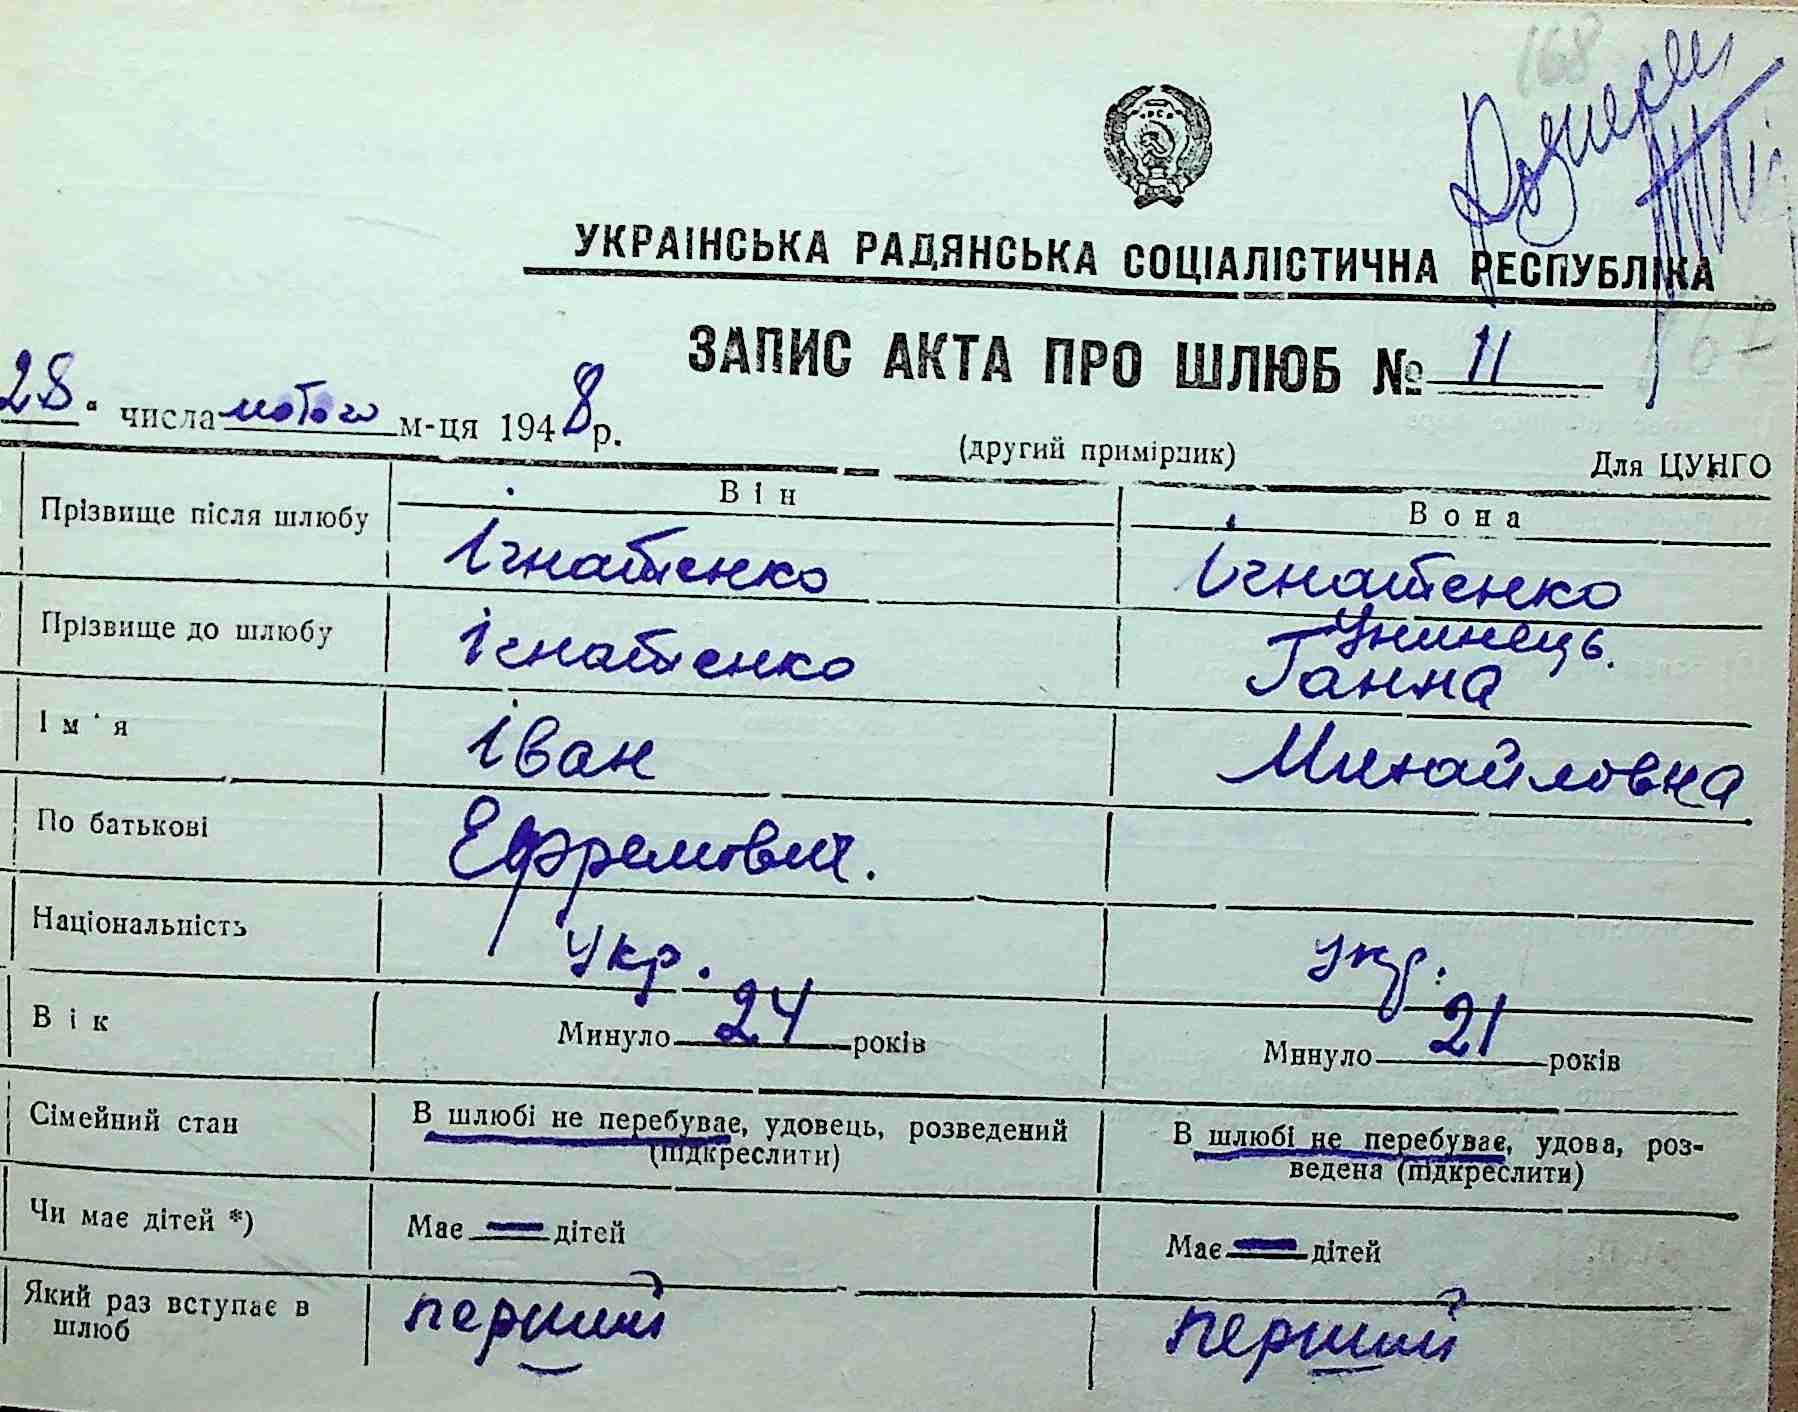 168
УКРАІНСЬКА РАДЯНСЬКА СОЦІАЛІСТИЧНА РЕСПУБЛІКА
ЗАПИС АКТА ПРО ШЛЮБ № 11
28 числа лютого м-ця 1948 р.
(другий примірник)
Для ЦУНГО
Він Вона
Прізвище після шлюбу Ігнатенко Ігнатенко
Прізвище до шлюбу Ігнатенко Унинець.
Ганна
Ім'я Іван Михайловна
По батькові Ефремович.
Національність Укр. укр.
Вік Минуло 24 років Минуло 21 років
Сімейний стан В шлюбі не перебуває, удовець, розведений (підкреслити) В шлюбі не перебуває, удова, роз-
ведена (підкреслити)
Чи має дітей *) Має — дітей Має — дітей
Який раз вступає в шлюб перший перший